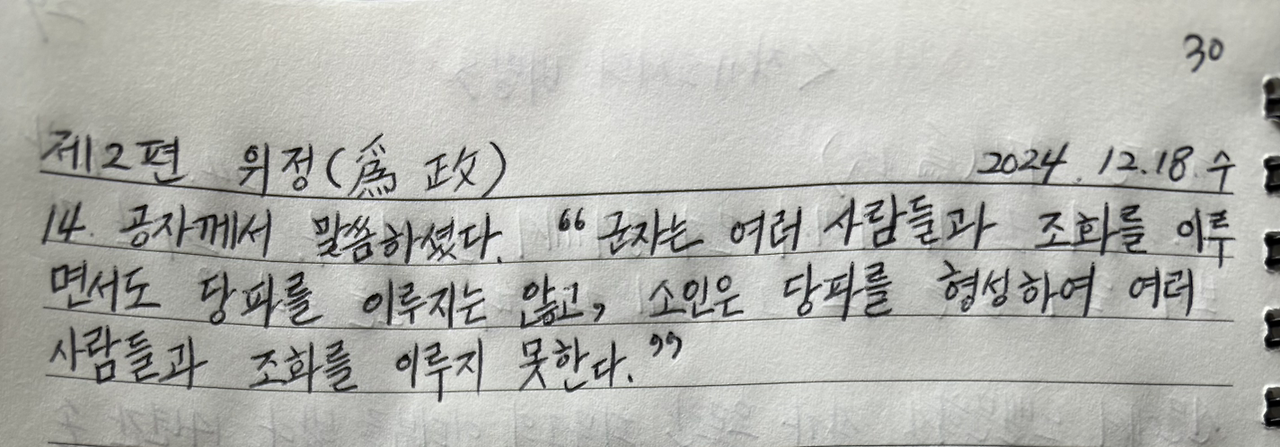 30
제2편 위정(爲政) 2024. 12. 18. 수
14. 공자께서 말씀하셨다. “군자는 여러 사람들과 조화를 이루
면서도 당파를 이루지는 않고, 소인은 당파를 형성하여 여러
사람들과 조화를 이루지 못한다.”